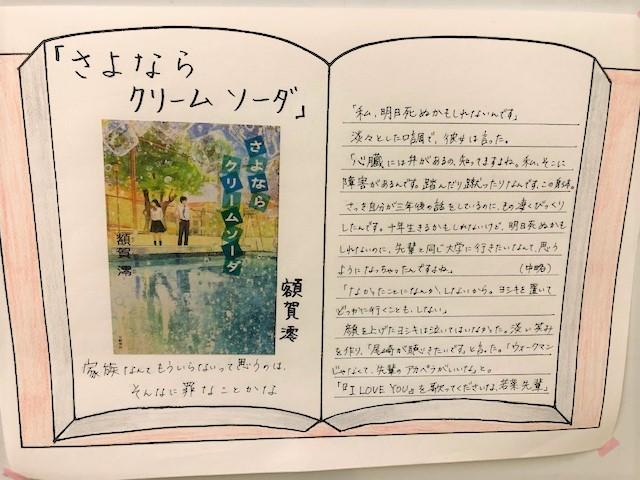 「さよなら
クリーム ソーダ」
さよなら
クリームソーダ
額賀 澪
額賀 澪
家族なんてもういらないって思うのは、
そんなに罪なことかな
「私、明日死ぬかもしれないんです」
淡々とした口調で、彼女は言った。
「心臓には弁があるの、知ってますよね。私、そこに
障害があるんです。踏んだり蹴ったりなんです、この身体。
さっき自分が三年後の話をしているのに、もの凄くびっくり
したんです。十年生きるかもしれないけど、明日死ぬかも
しれないのに、先輩と同じ大学に行きたいなんて、思う
ようになっちゃったんですよね。」 (中略)
「なかったことになんか、しないから。ヨシキを置いて
どっかに行くことも、しない」
顔を上げたヨシキは泣いてはいなかった。淡い笑み
を作り、「尾崎が聴きたいです」と言った。「ウォークマン
じゃなくて、先輩のアカペラがいいな」と。
「『I LOVE YOU』を歌ってくださいな、若菜先輩」